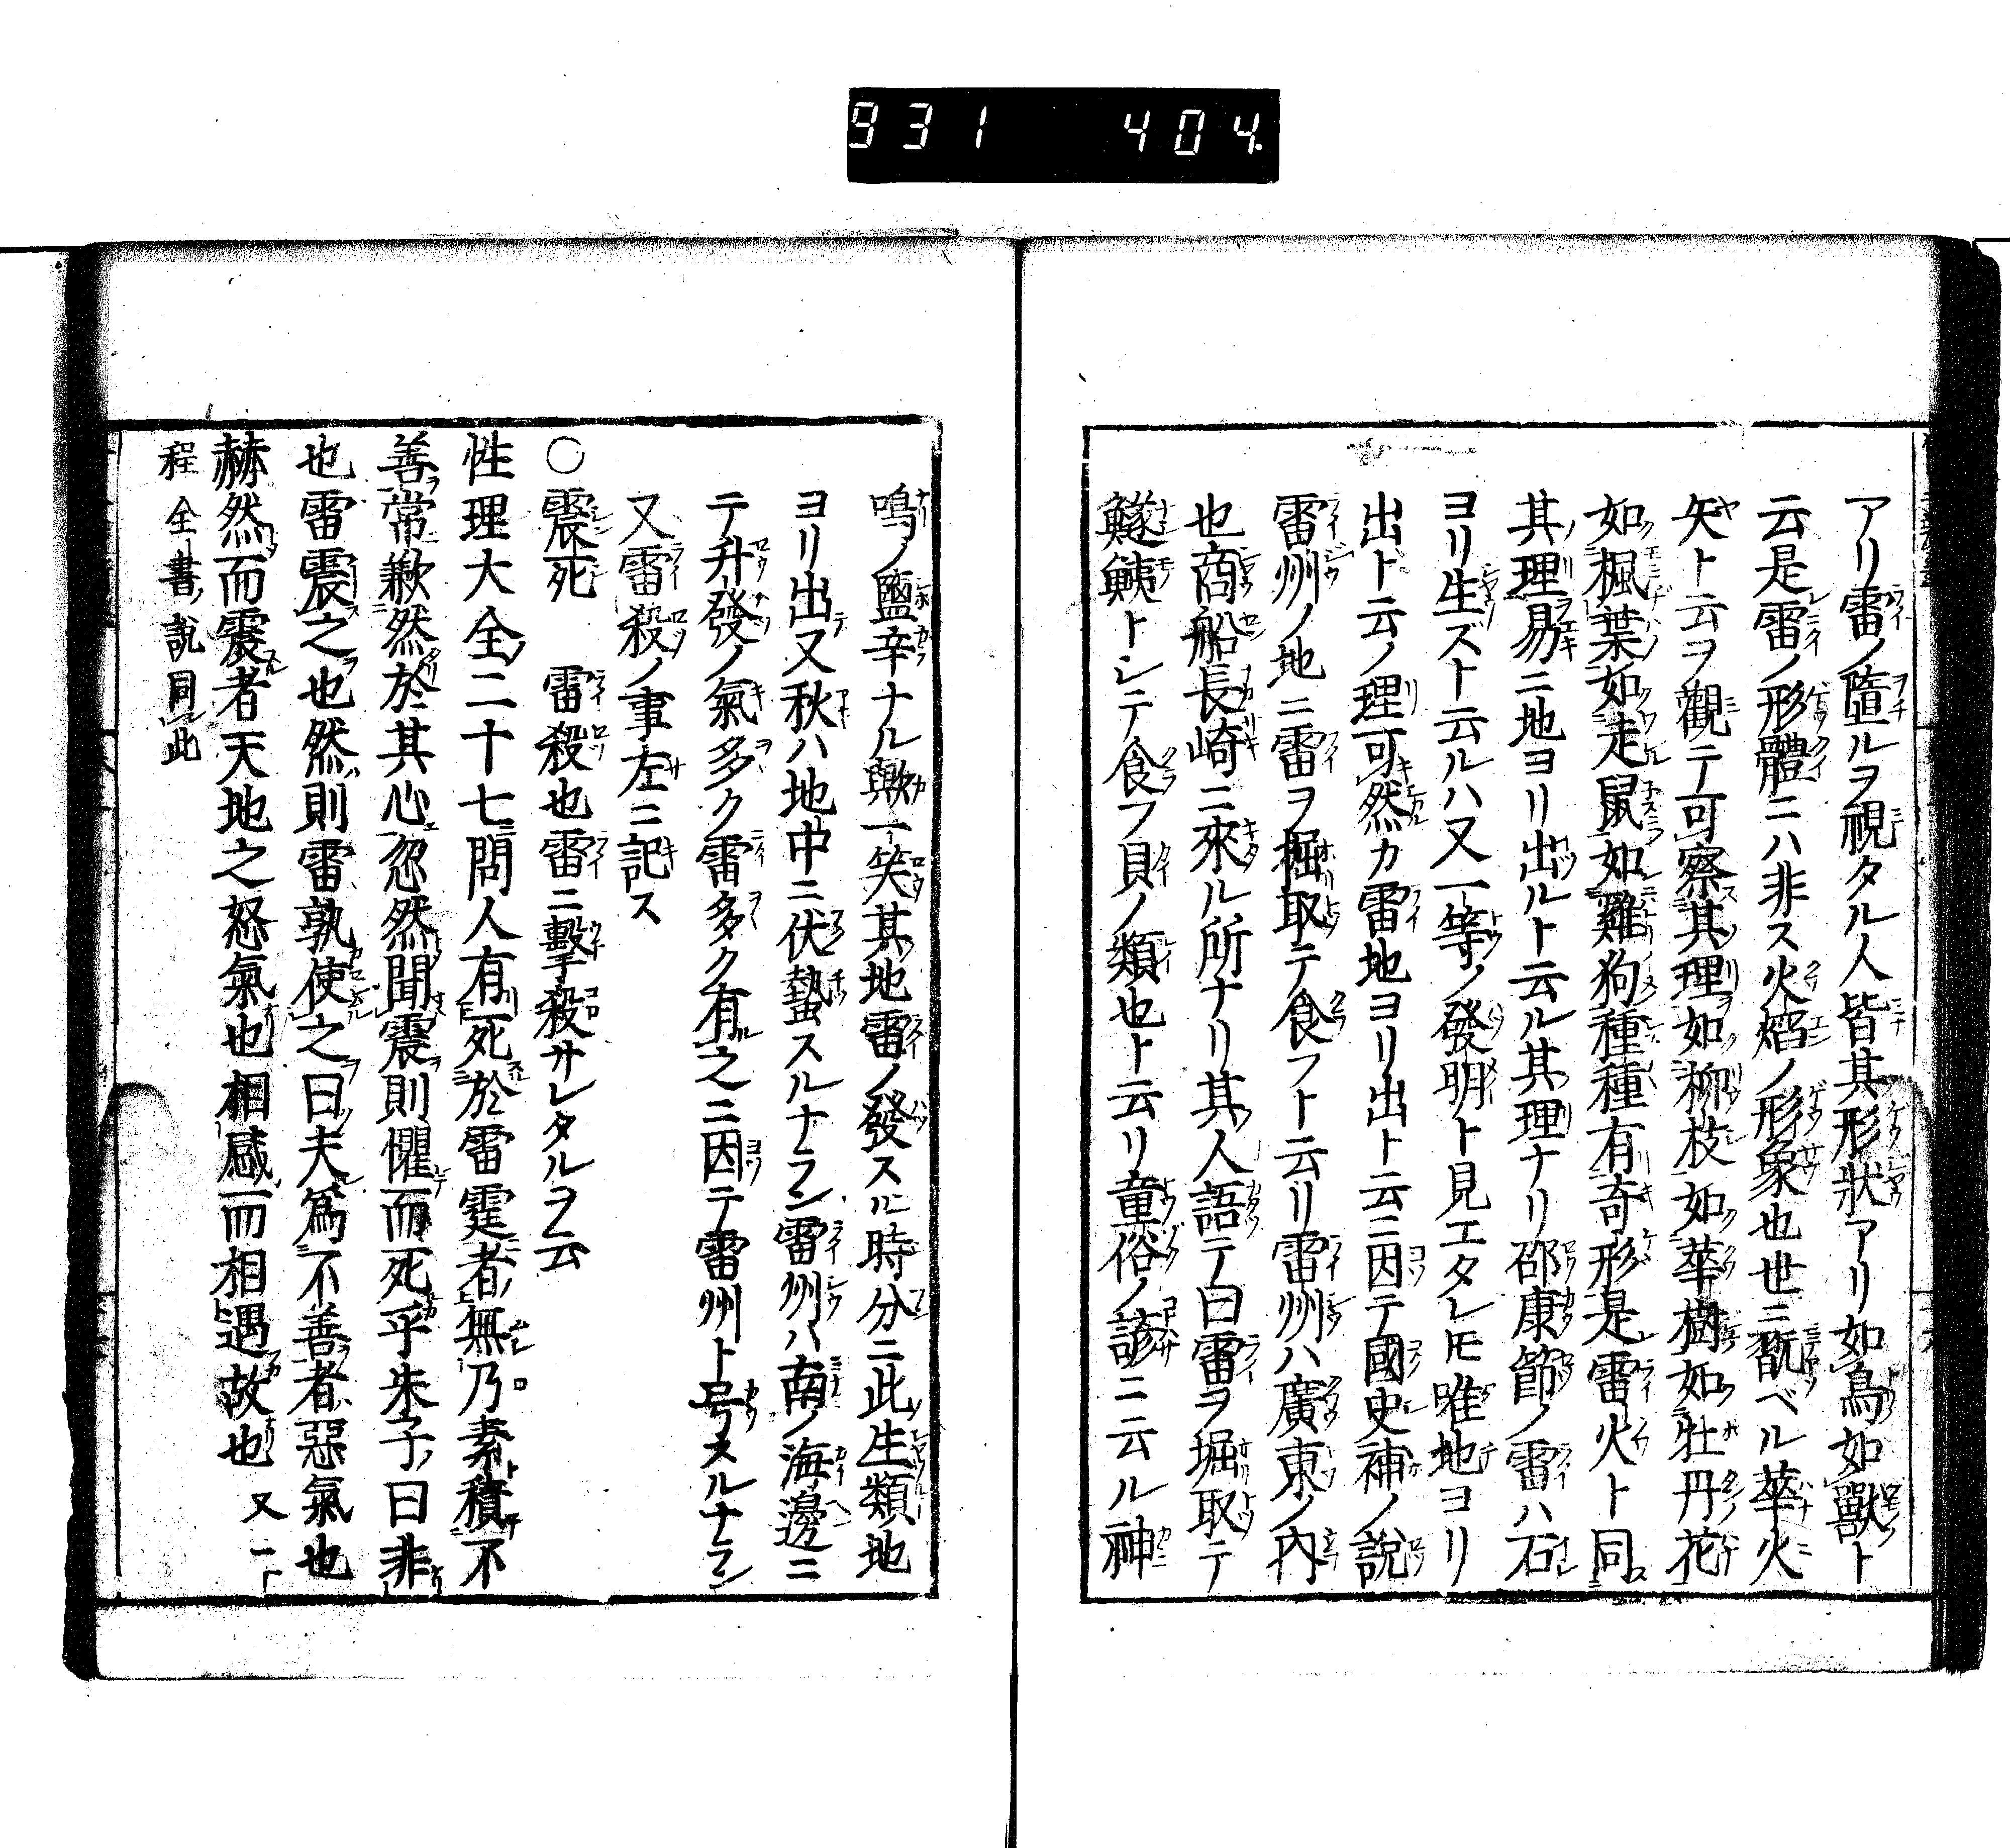 931 404
アリ雷ノ墮ルヲ視タル人皆其形狀アリ如鳥如獸ト
云是雷ノ形體ニハ非ス火焰ノ形象也世ニ翫ベル華火
矢ト云ヲ觀テ可察其理如柳枝如華樹如牡丹花
如楓葉如走鼠如雞狗種種有奇形是雷火ト同
其理易ニ地ヨリ出ルト云ル其理ナリ邵康節ノ雷ハ石
ヨリ生ズト云ルハ又一等ノ發明ト見エタレ𪜈唯地ヨリ
出ト云ノ理可然カ雷地ヨリ出ト云ニ因テ國史補ノ說
雷州ノ地ニ雷ヲ掘取テ食フト云リ雷州ハ廣東ノ內
也商船長崎ニ來ル所ナリ其人語テ曰雷ヲ堀取テ
鱁鮧トシテ食フ貝ノ類也ト云リ童俗ノ諺ニ云ル神
鳴ノ鹽辛ナル歟一笑其地雷ノ發スル時分ニ此生類地
ヨリ出又秋ハ地中ニ伏蟄スルナラン雷州ハ南ノ海邊ニ
テ升發ノ氣多ク雷多ク有之ニ因テ雷州ト号スルナラン
又雷殺ノ事左ニ記ス
○震死 雷殺也雷ニ擊殺サレタルヲ云
性理大全二十七問人有死於雷霆者無乃素積不
善常歉然於其心忽然聞震則懼而死乎朱子曰非
也雷震之也然則雷孰使之曰夫爲不善者惡氣也
赫然而震者天地之怒氣也相感而相遇故也 又二ト
程全書說同此